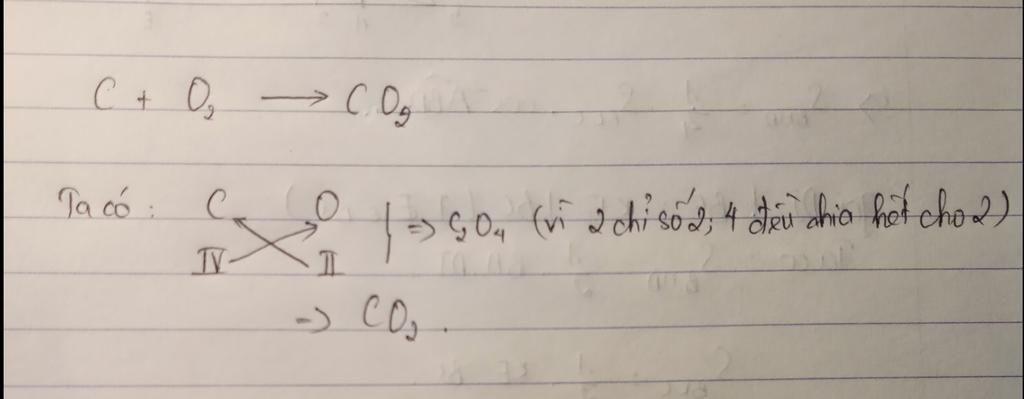 C + O₂ → CO₂
Ta có: C O } => C₂O₄ (vì 2 chỉ số 2; 4 đều chia hết cho 2)
IV II
=> CO₂.